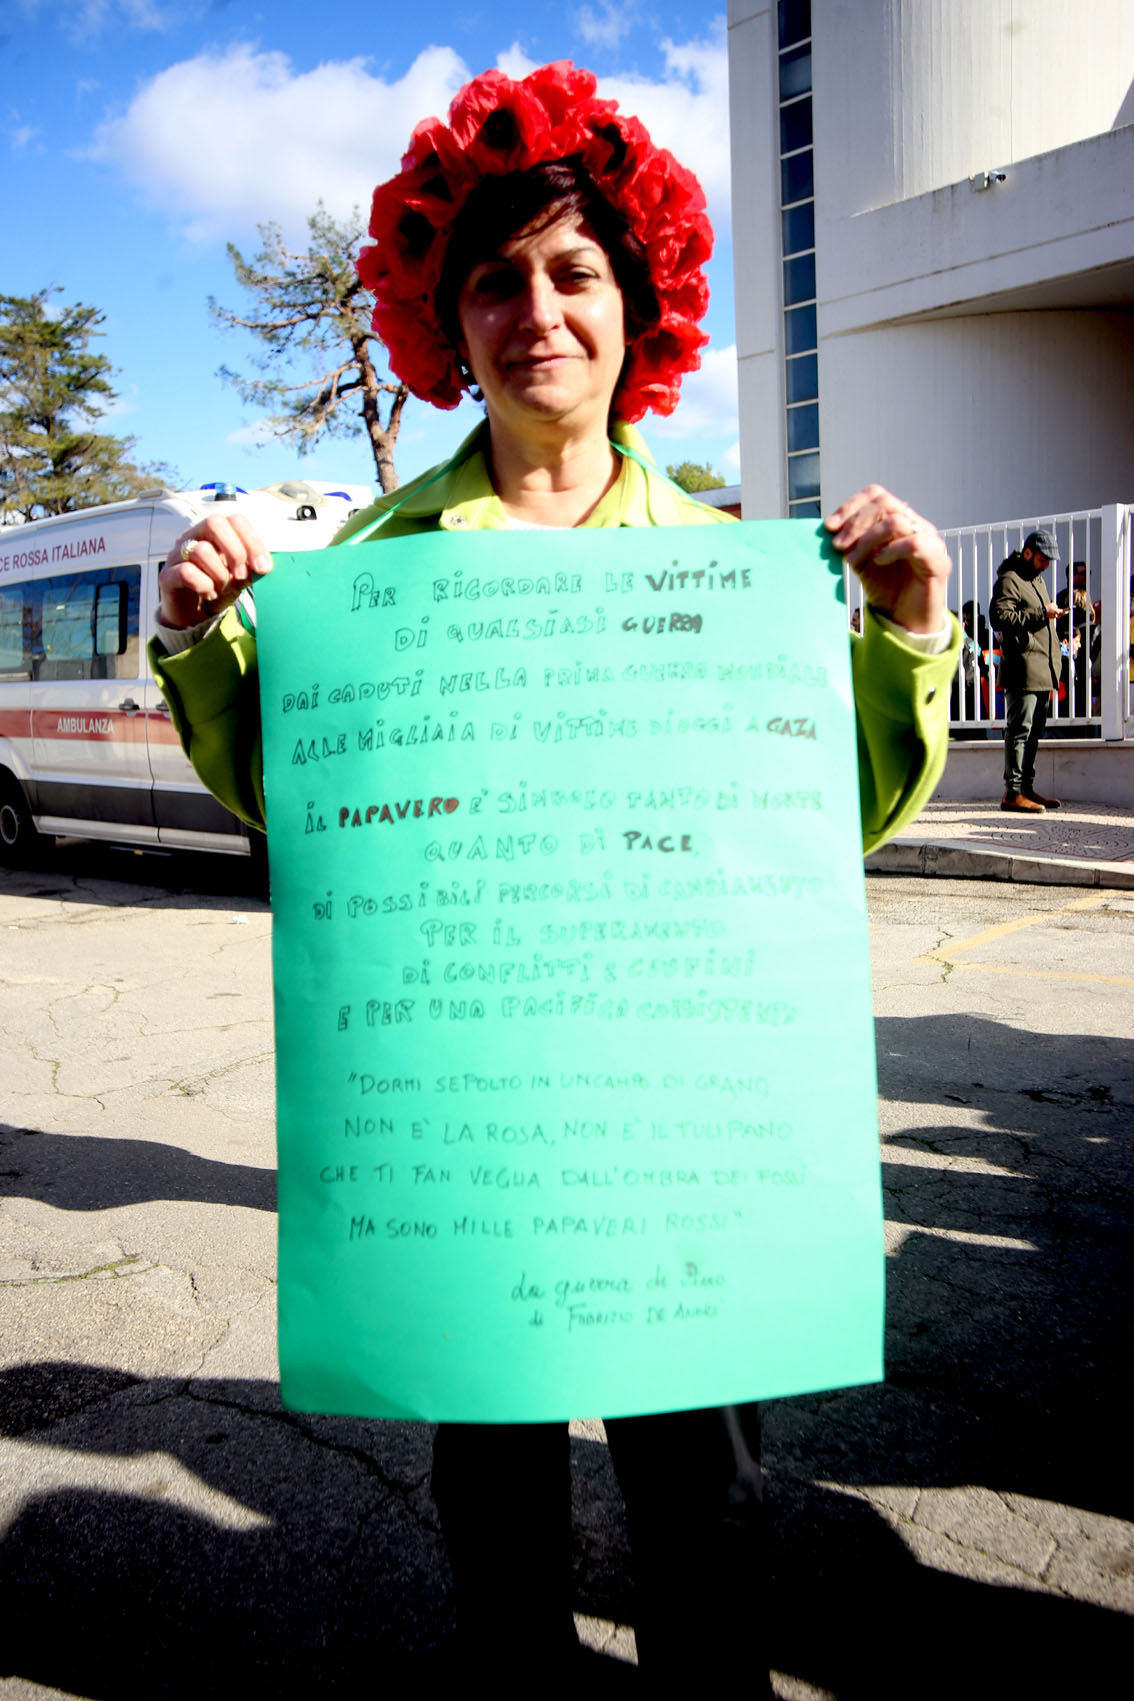 CE ROSSA ITALIANA
AMBULANZA
PER RICORDARE LE VITTIME
DI QUALSIASI GUERRA
DAI CADUTI NELLA PRIMA GUERRA MONDIALE
ALLE MIGLIAIA DI VITTIME DI OGGI A GAZA
IL PAPAVERO E' SIMBOLO TANTO DI MORTE
QUANTO DI PACE,
DI POSSIBILI PERCORSI DI CAMBIAMENTO
PER IL SUPERAMENTO
DI CONFLITTI E CONFINI
E PER UNA PACIFICA COESISTENZA
"DORMI SEPOLTO IN UN CAMPO DI GRANO
NON E' LA ROSA, NON E' IL TULIPANO
CHE TI FAN VEGLIA DALL'OMBRA DEI FOSSI
MA SONO MILLE PAPAVERI ROSSI"
La guerra di Piero
di FABRIZIO DE ANDRE'